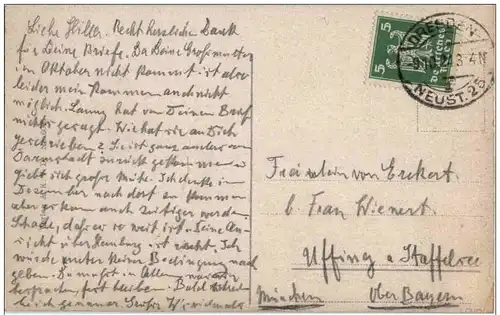 Liebe Hilla. Recht herzlichen Dank
für Deine Briefe. Da Deine Grossmutter
im Oktober nicht kommt ist also
leider mein Kommen auch nicht
möglich. hat von Deinem Brief
nichts gesagt. Wie hat sie an Dich
geschrieben? Sie ist ganz anders von
Darmstadt zurück gekommen
giebt sich große Mühe. Ich denke im
Dezember nach dort zu kommen
aber es kann auch zeitiger werden
Schade, daß er so weit ist. Deine An-
sicht über Hamburg ist recht. Ich
würde unter keiner Bedingung nach
geben. Du mußt in Allem
fest bleiben. Bald schreib
ich genauer.
5 5
Deutsches Reich
DRESDEN
NEUST. 25
3-4N
Fräulein von Eckert.
b. Frau Wienert.
Uffing a Staffelsee
München Ober Bayern